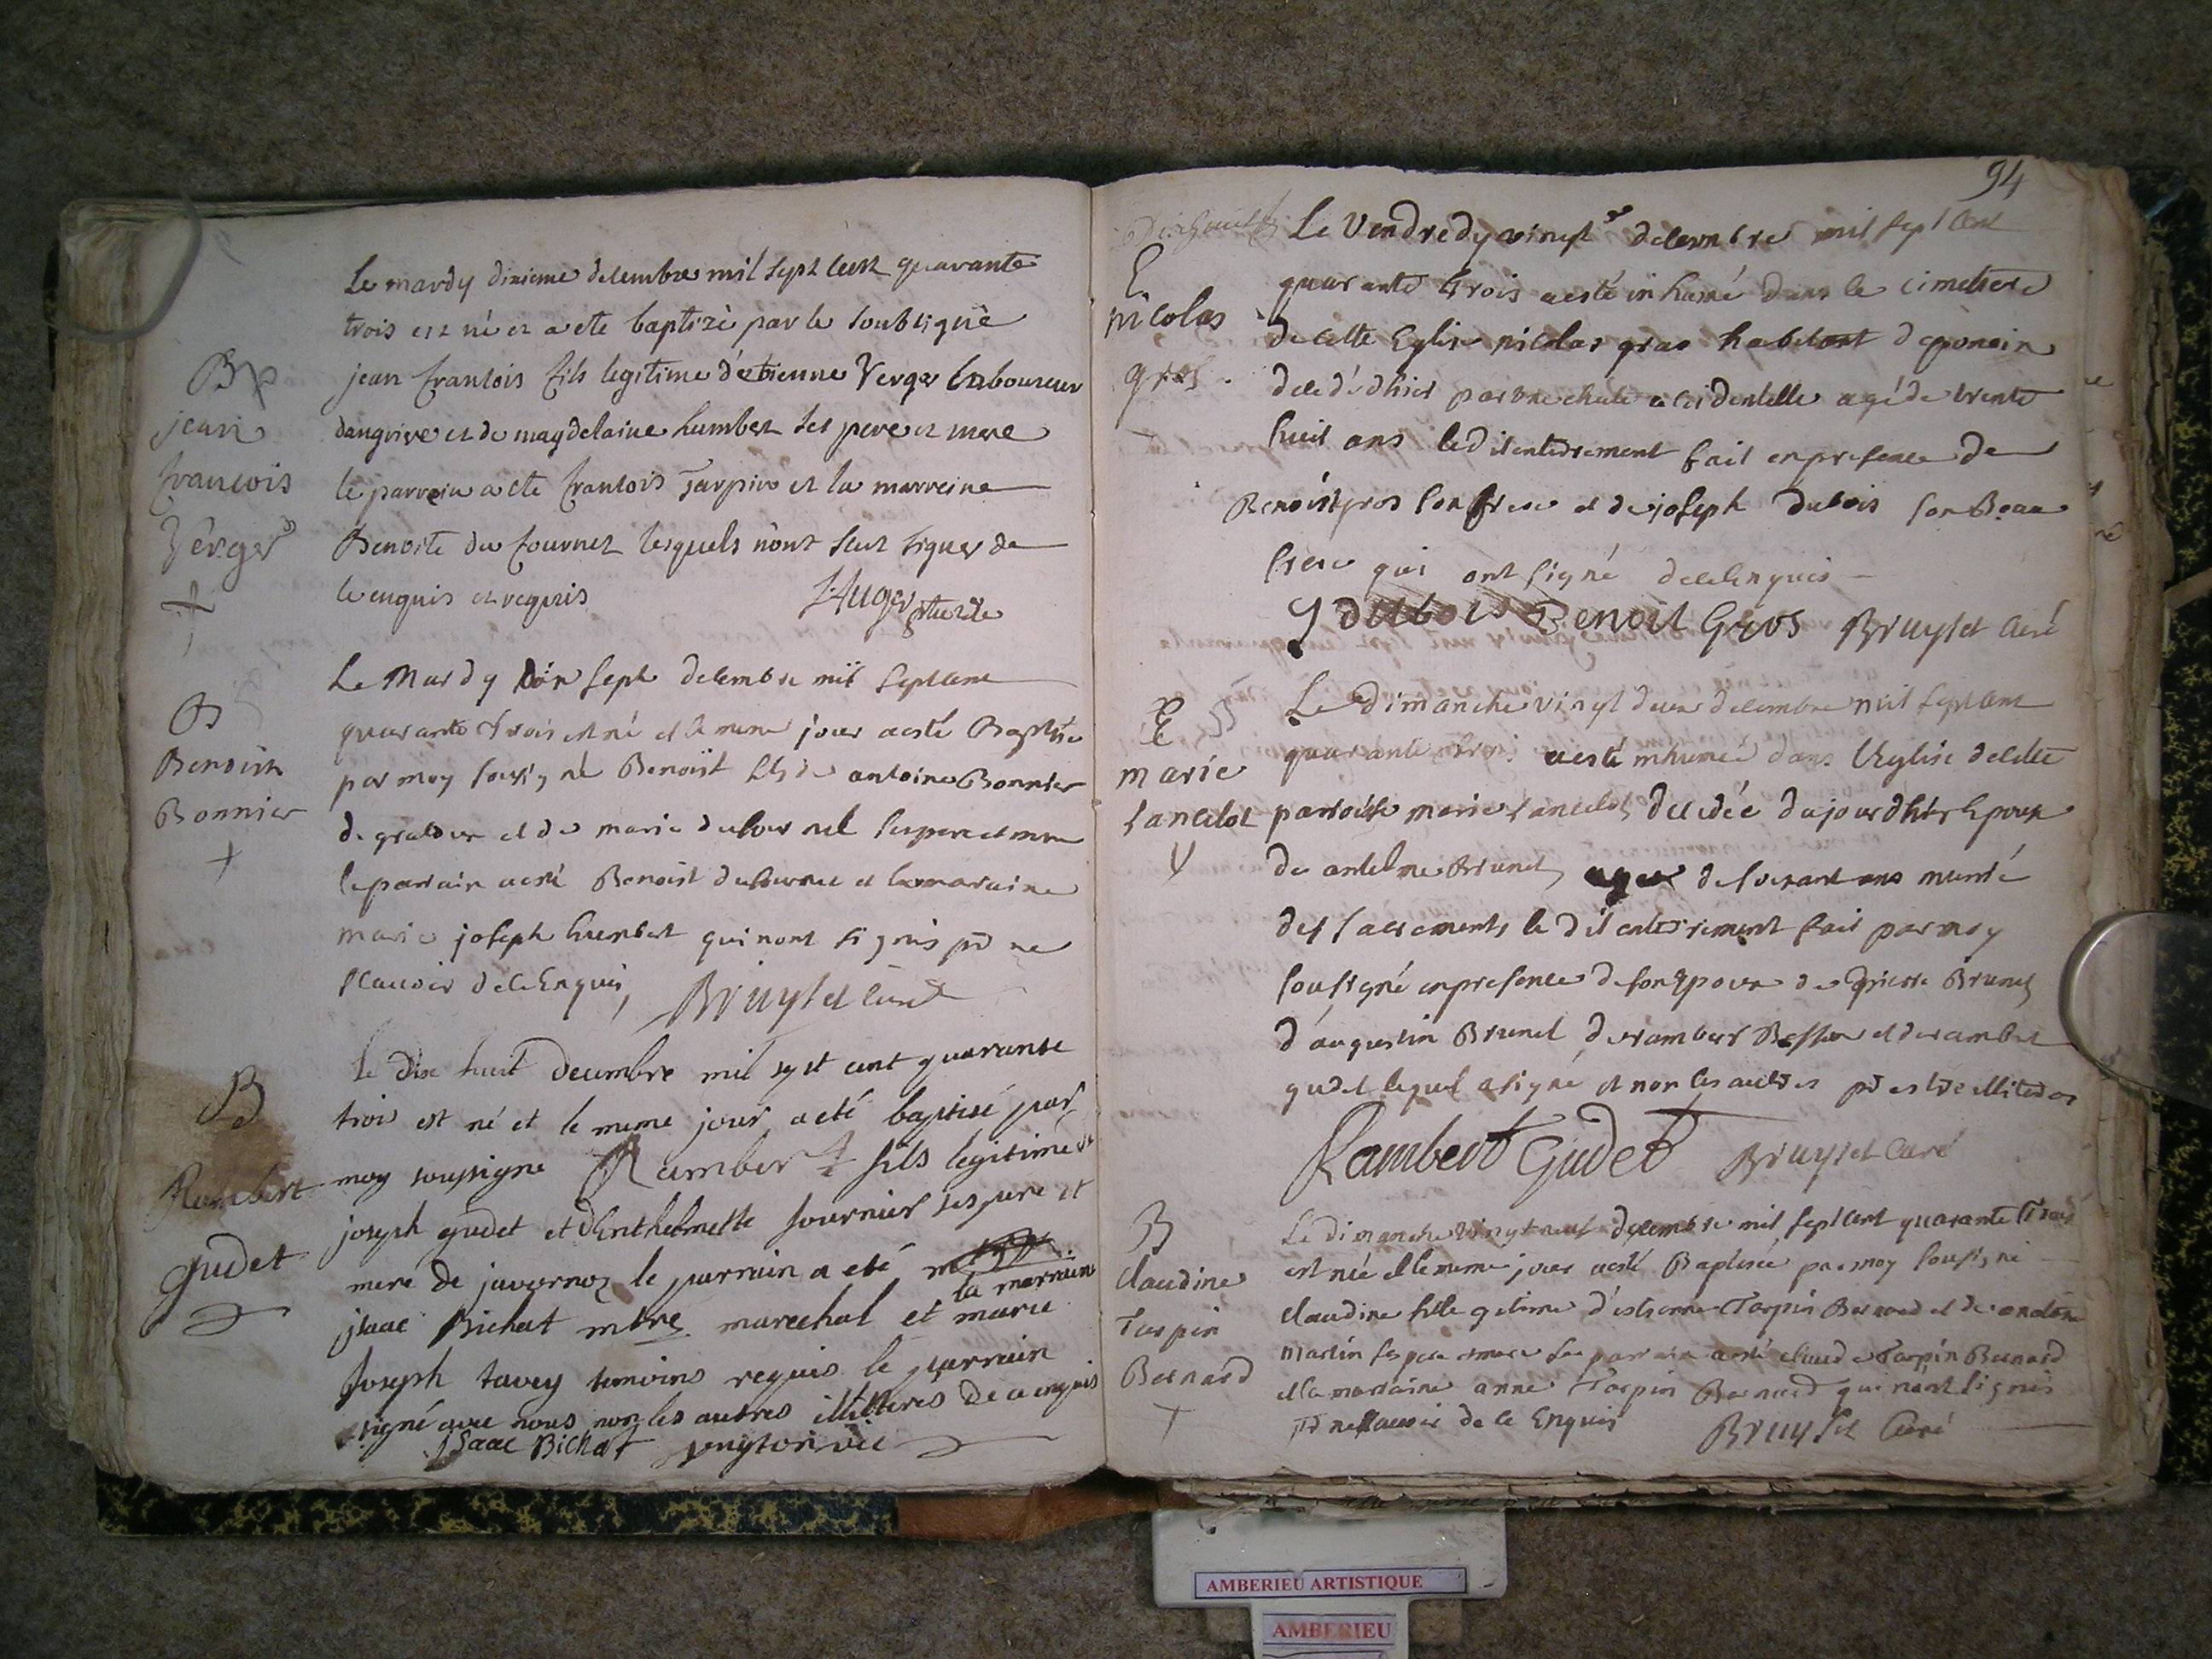 Le mardy dixieme decembre mil sept cent quarante
trois est né et a ete baptizè par le soubsignè
Bp
jean
francois
Verger
jean francois fils legitime d'etienne Verger laboureur
dangrive et de magdelaine humbert ses pere et mere
le parrein a ete francois Tarpin et la marreine
Benoite du fournet lesquels n'ont sceu signer de
ce enquis et requis
Auger
Le Mardy dix sept decembre mil sept cent
B
Benoist
Bonnier
quarante trois est né et le meme jour a esté Baptise
par moy sousigné Benoist fils de antoine Bonnier
de et de marie dufournel ses pere et mere
le parrain a esté Benoist dufournel et la maraine
marie joseph humbert qui nont signés pr ne
scauoir de ce Enquis
Bruyset Curé
B
Rambert
gudet
le dix huit decembre mil sept cent quarante
trois est né et le meme jour a eté baptisé par
moy soussigne Rambert fils legitime de
joseph gudet et d'Enthelmette fournier ses pere et
mere de javornoz le parrain a eté
la marraine
jsaac Bichat mtre marechal et marie
Joseph tavey temoins requis le parrain
signé avec nous non les autres illitteres de ce enquis
jsaac Bichat
94
E
nicolas
gros
Le Vendredy vingt decembre mil sept cent
quarante trois a esté inhumé dans le cimetiere
de cette Eglise nicolas gros habitant de poncin
decedé d'hier par une chute accidentelle agé de trente
huit ans ledit enterrement fait en presence de
Benoist gros son frere et de joseph dubois son Beau
frere qui ont signé de ce Enquis
J dubois Benoit Gros Bruyset Curé
E
marie
lancelot
Le dimanche vingt deux decembre mil sept cent
quarante trois a esté inhumée dans l'Eglise de cette
paroisse marie lancelot decedée dujourdhier Epouse
de antelme Brunet agée de soixant ans munié
des sacrements le dit enterrement fait par moy
sousigné en presence de son Epoux de pierre Brunet
d'augustin Brunet de rambert Besson et de rambert
gudet lequel a signé et non les autres pr estre illiteres
Rambert Gudet Bruyset Curé
B
Claudine
Tarpin
Bernard
Le dimanche vingt neuf decembre mil sept cent quarante trois
est née et le meme jour a esté Baptisée par moy sousigné
claudine fille gitime d'estienne Tarpin Bernard et de
Martin ses pere et mere le parrain a esté claude Tarpin Bernard
et la marraine anne Tarpin Bernard qui nont signés
pr ne scauoir de ce Enquis
Bruyset Curé
AMBERIEU ARTISTIQUE
AMBERIEU